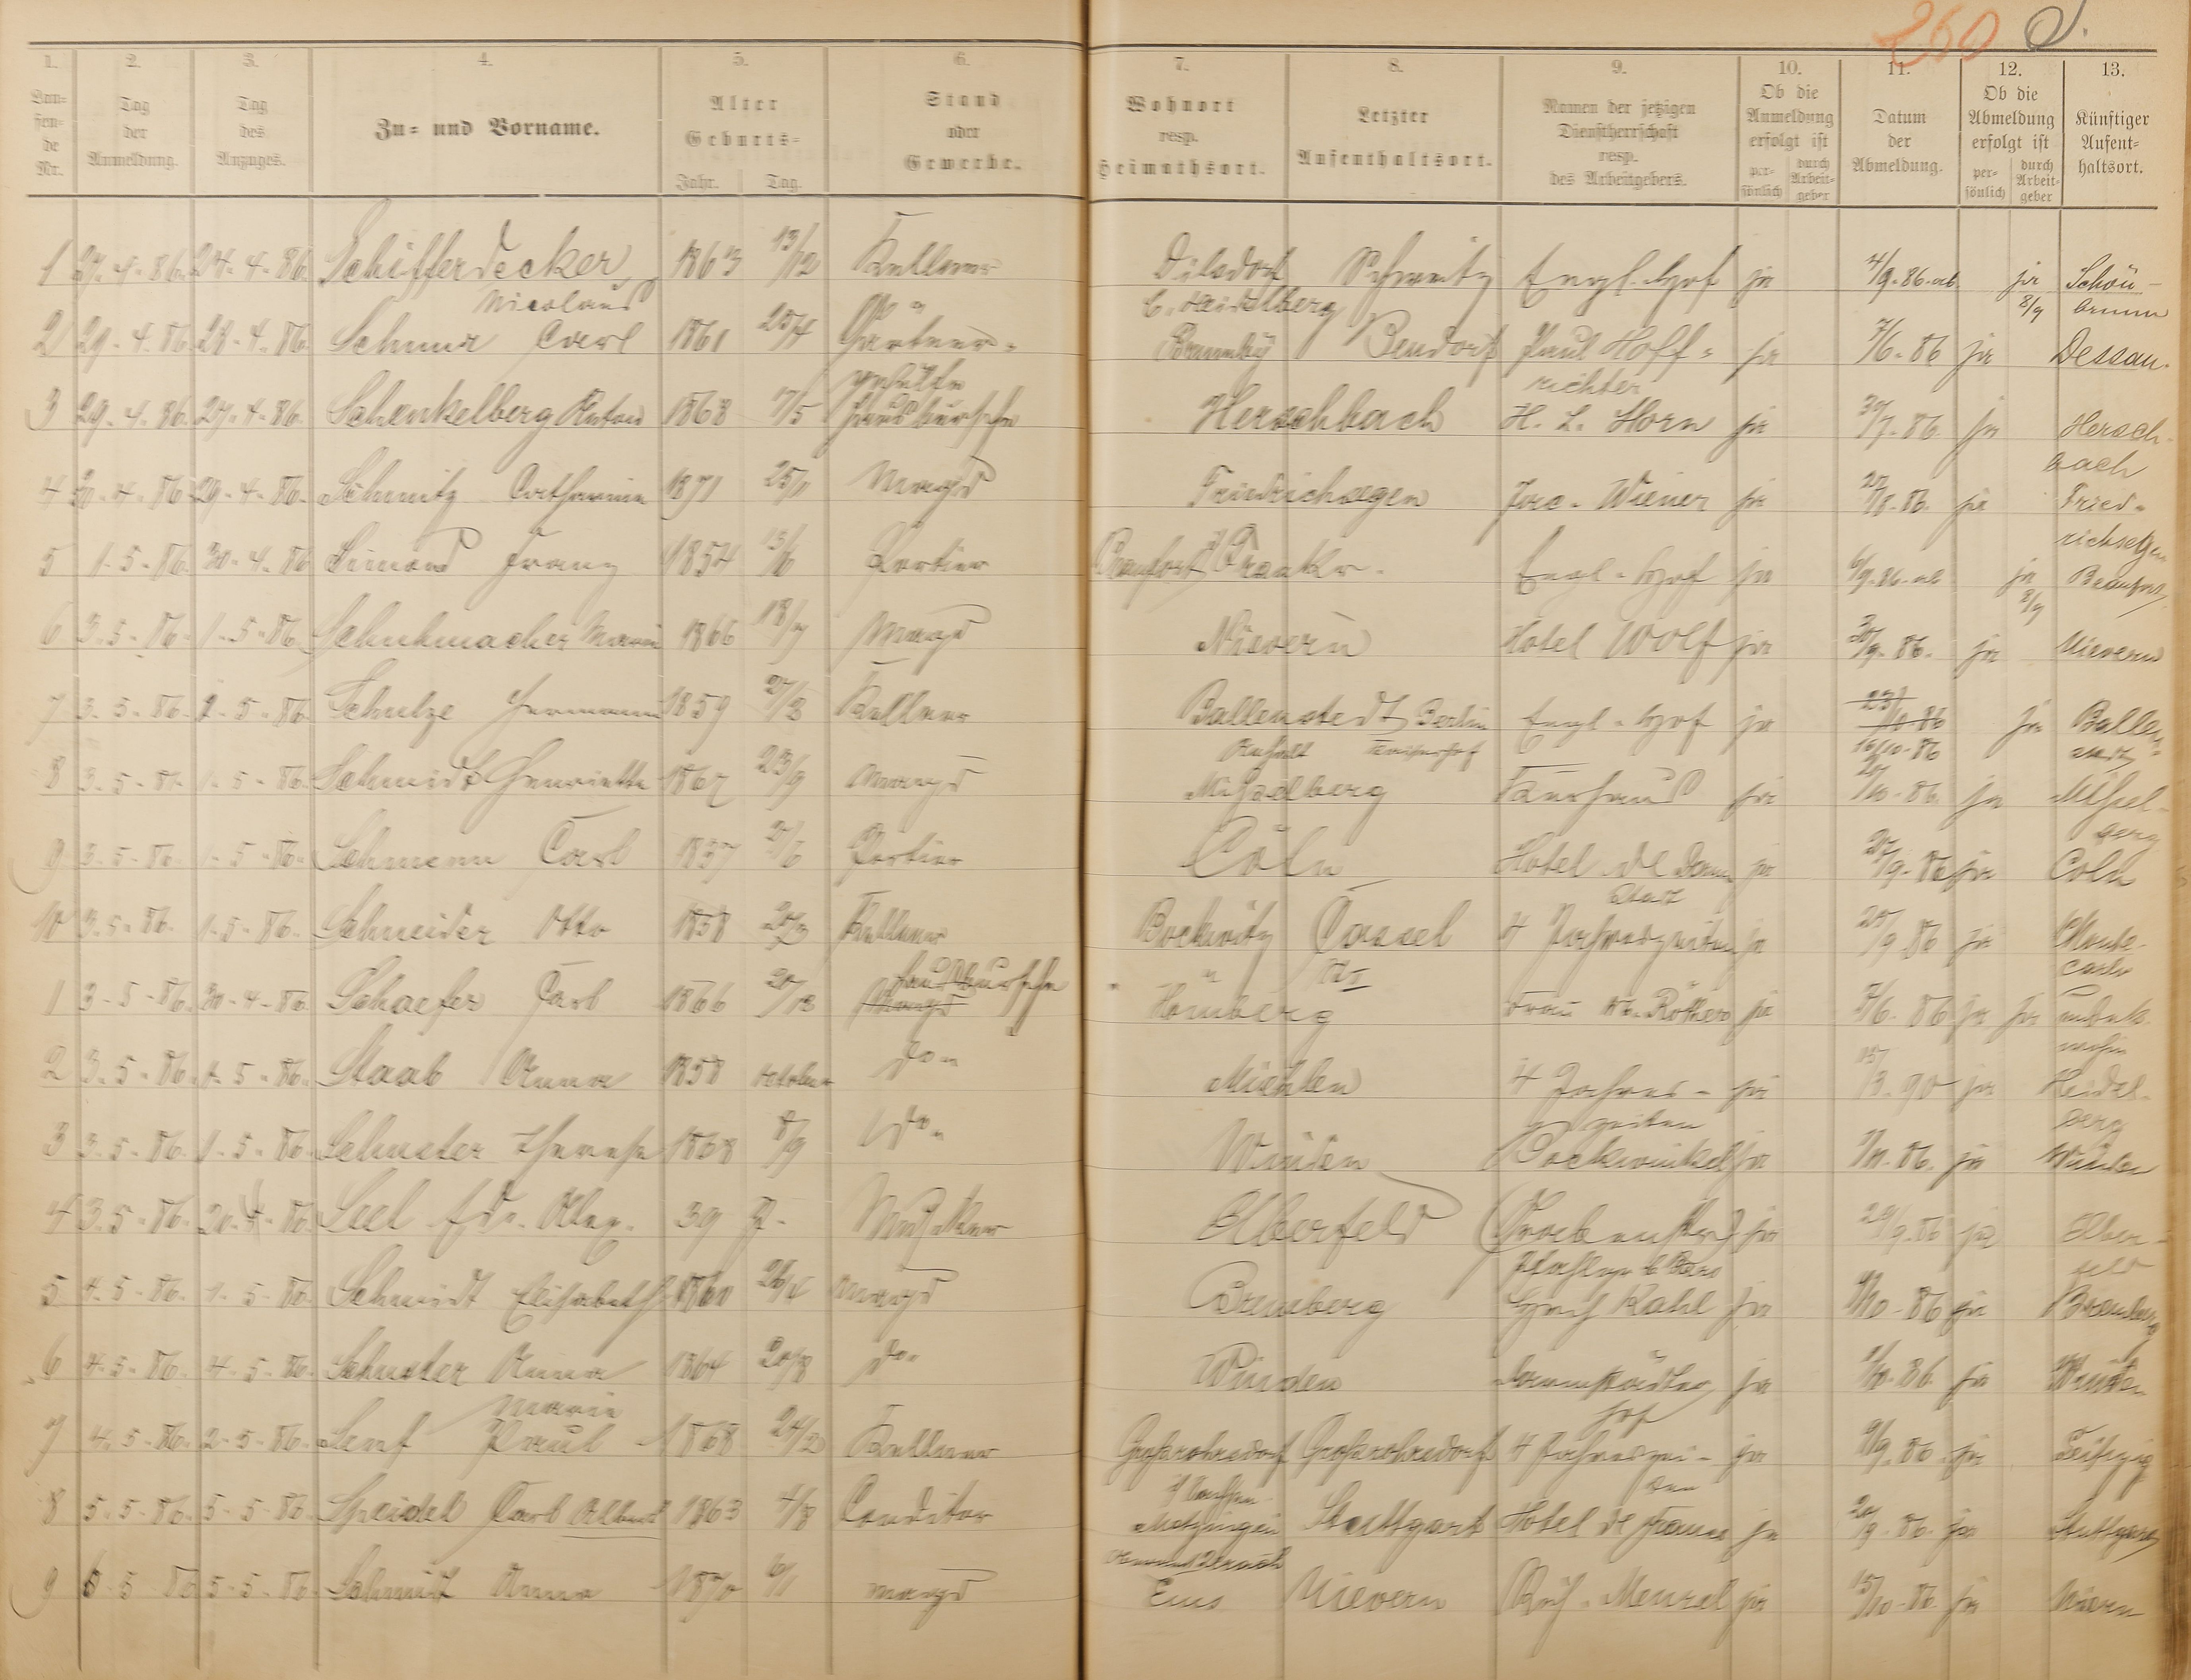 260 S.
1. 2. 3. 4. 5. 6. 7. 8. 9. 10. 11. 12. 13.
Laufende Nr. Tag der Anmeldung. Tag des Anzuges. Zu- und Vorname. Alter Geburts- Jahr. Tag. Stand oder Gewerbe. Wohnort resp. Heimathsort. Letzter Aufenthaltsort. Namen der jetzigen Dienstherrschaft resp. des Arbeitgebers. Ob die Anmeldung erfolgt ist persönlich durch Arbeitgeber Datum der Abmeldung. Ob die Abmeldung erfolgt ist persönlich durch Arbeitgeber Künftiger Aufenthaltsort.
1 27-4-86. 24-4-86. Schifferdecker 1863 13/12 Kellner Dilsdorf Schweitz Engl. Hof ja 4/9-86 ab. ja Schön-
Nicolaus b. Heidelberg 8/9 brunn
2 29-4-86. 28-4-86. Schnur Carl 1861 25/4 Gärtner- Bendorf Paul Hoff- ja 7/6-86 ja Dessau.
gehülfe richter
3 29-4-86. 27-4-86. Schenkelberg Anton 1868 7/5 Hausbursche Herschbach H. L. Horn ja 30/7-86. ja Hersch-
bach
4 30-4-86. 29-4-86. Schmitz Catharina 1871 25/1 Magd Friedrichsegen Jac. Wiener ja 86. ja Fried-
richsegen
5 1-5-86. 30-4-86 Simond Franz 1854 Portier Beaufort Frankr. Engl. Hof ja 6/9-86 ab ja Beaufort
8/9
6 3-5-86. 1-5-86. Schuhmacher Marie 1866 18/7 Magd Nievern Hotel Wolf ja 30/9-86. ja Nievern
7 3-5-86. 1-5-86 Schulze Hermann 1859 27/3 Kellner Ballenstedt Berlin Engl. Hof ja ja Ballen-
Anhalt Kaiserhof 16/10-86 stedt
8 3-5-86. 1-5-86. Schmidt Henriette 1867 23/9 Magd Misselberg Kurhaus ja 86. ja Missel-
berg
9 3-5-86. 1-5-86. Schmenn Carl 1837 2/6 Portier Cöln Hotel de Darm ja 86 ja Coln
stadt
10 3-5-86. 1-5-86. Schneider Otto 1858 20/2 Kellner Bockwitz Cassel 4 Jahreszeiten ja 25/9 86 ja Monte-
Carlo
1 3-5-86. 30-4-86. Schaefer Carl 1866 Hausbursche Hömberg Frau Röthers ja 7/6. 86 ja ja unbek.
wohin
2 3-5-86. 1-5-86. Staab Anna 1858 October do. Miehlen 4 Jahres- ja 90 ja Heidel-
zeiten berg
3 3-5-86. 1-5-86. Schuster Therese 1868 8/9 do. Winden Bockwinkel ja 86. ja Winden
4 3-5-86. 20-4-86. Seel Alex. 39 J. Musiker Elberfeld ja 29/9-86 ja Elber-
feld
5 4-5-86. 1-5-86. Schmidt Elisabeth 1860 26/4 Magd Bremberg Kahl ja 86 ja Bremberg
6 4-5-86. 4-5-86. Schuster Anna 1864 20/8 do. Winden Darmstädter ja 86. ja Winden
Marie Hof
7 4-5-86. 2-5-86. Senf Paul 1868 24/2 Kellner Grossröhrsdorf Grossröhrsdorf 4 Jahreszei- ja 9/9. 86 ja Leipzig
i/ Sachsen ten
8 5-5-86. 5-5-86. Speidel Carl Albert 1863 4/8 Conditor Metzingen Stuttgart Hotel de France ja 86. ja Stuttgart
9 5-5-86 5-5-86. Schmidt Anna 1870 6/1 Magd Ems Nievern Menzel ja 15/10-86. ja Nievern